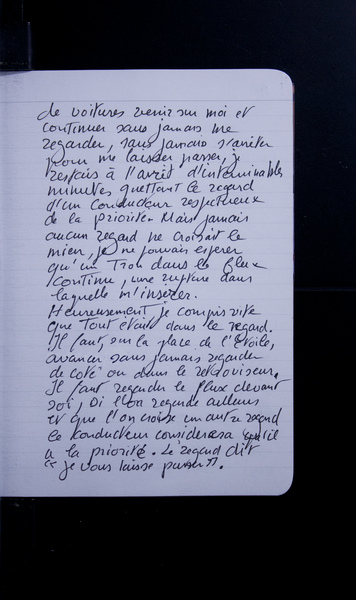 de voitures venir sur moi et
continuer sans jamais me
regarder, sans jamais s'arrêter
pour me laisser passer, je
restais à l'arrêt d'interminables
minutes guettant le regard
d'un conducteur respectueux
de la priorité. Mais jamais
aucun regard ne croisait le
mien, je ne pouvais espérer
qu'un trou dans le flux
continu, une rupture dans
laquelle m'insérer.
Heureusement, je compris vite
que tout était dans le regard.
Il faut, sur la place de l'Étoile,
avancer sans jamais regarder
de coté ou dans le rétroviseur.
Il faut regarder le flux devant
soi, si l'on regarde ailleurs
et que l'on croise un autre regard
le conducteur considerera qu'il
a la priorité. Le regard dit
"je vous laisse passer".